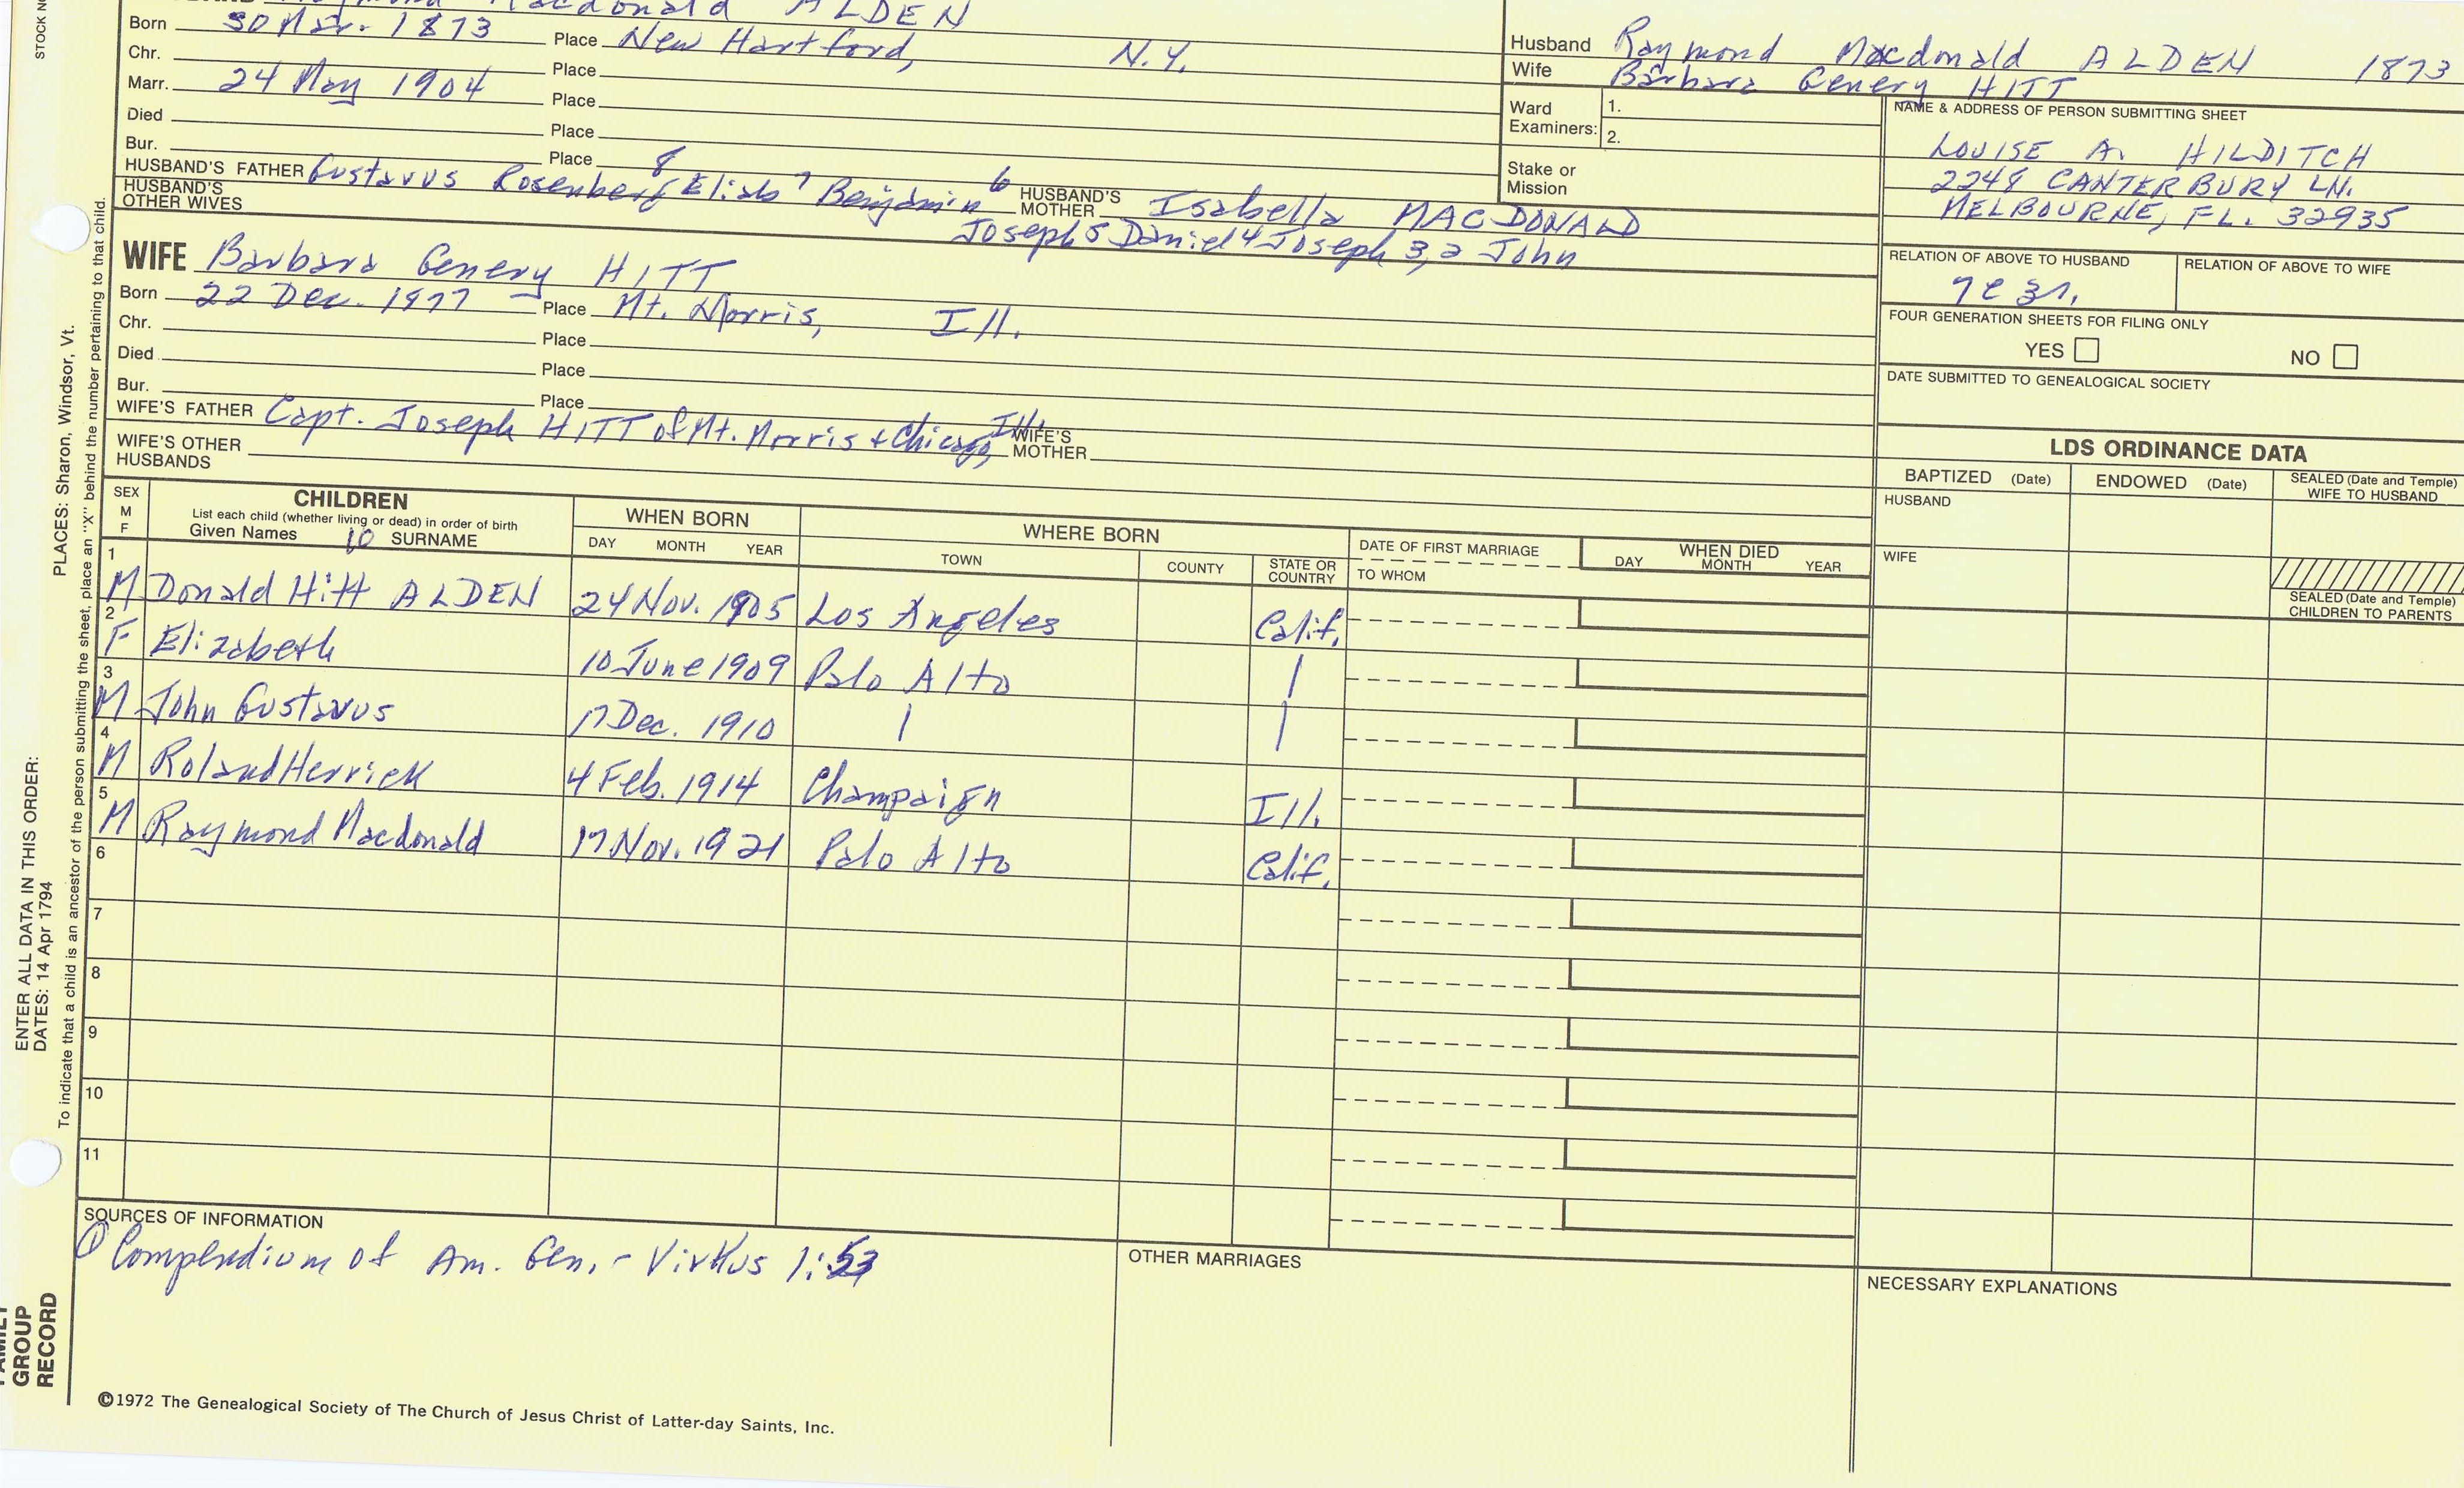 Macdonald ALDEN
Born 30 Mar. 1873 Place New Hartford, N.Y.
Chr. Place
Marr. 24 May 1904 Place
Died Place
Bur. Place
HUSBAND'S FATHER Gustavus Rosenberg 8 Eliab 7 Benjamin 6 HUSBAND'S MOTHER Isabella MACDONALD
HUSBAND'S OTHER WIVES Joseph 5 Daniel 4 Joseph 3,2 John
WIFE Barbara Genery HITT
Born 22 Dec. 1877 Place Mt. Morris, Ill.
Chr. Place
Died Place
Bur. Place
WIFE'S FATHER Capt. Joseph HITT of Mt. Morris + Chicago, Ill. WIFE'S MOTHER
WIFE'S OTHER HUSBANDS
Husband Raymond Macdonald ALDEN 1873
Wife Barbara Genery HITT
Ward Examiners: 1.
2.
Stake or Mission
NAME & ADDRESS OF PERSON SUBMITTING SHEET
LOUISE A. HILDITCH
2248 CANTERBURY LN.
MELBOURNE, FL. 32935
RELATION OF ABOVE TO HUSBAND RELATION OF ABOVE TO WIFE
7c3r.
FOUR GENERATION SHEETS FOR FILING ONLY
YES NO
DATE SUBMITTED TO GENEALOGICAL SOCIETY
LDS ORDINANCE DATA
BAPTIZED (Date) ENDOWED (Date) SEALED (Date and Temple) WIFE TO HUSBAND
HUSBAND
WIFE
SEALED (Date and Temple) CHILDREN TO PARENTS
SEX M F CHILDREN WHEN BORN WHERE BORN DATE OF FIRST MARRIAGE WHEN DIED
List each child (whether living or dead) in order of birth
Given Names 10 SURNAME DAY MONTH YEAR TOWN COUNTY STATE OR COUNTRY TO WHOM DAY MONTH YEAR
1 M Donald Hitt ALDEN 24 Nov. 1905 Los Angeles Calif.
2 F Elizabeth 10 June 1909 Palo Alto |
3 M John Gustavus 17 Dec. 1910 | |
4 M Roland Herrick 4 Feb. 1914 Champaign Ill.
5 M Raymond Macdonald 17 Nov. 1921 Palo Alto Calif.
6
7
8
9
10
11
SOURCES OF INFORMATION
① Compendium of Am. Gen. - Virkus 1:53
OTHER MARRIAGES
NECESSARY EXPLANATIONS
©1972 The Genealogical Society of The Church of Jesus Christ of Latter-day Saints, Inc.
STOCK NO
PLACES: Sharon, Windsor, Vt.
To indicate that a child is an ancestor of the person submitting the sheet, place an "X" behind the number pertaining to that child.
ENTER ALL DATA IN THIS ORDER:
DATES: 14 Apr 1794
FAMILY
GROUP
RECORD